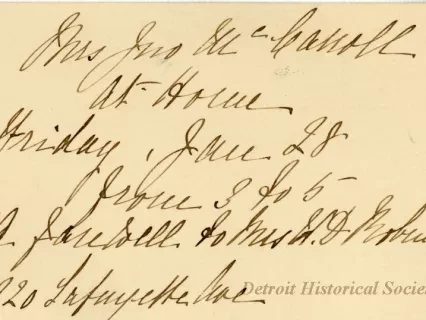 Mrs Jno McCarroll
at Home
Friday, Jan 28
from 3 to 5
farewell to Mrs D
220 Lafayette Ave
Detroit Historical Socie